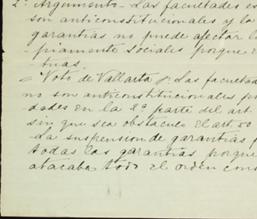 2º Argumento - Las facultades es
son anticonstitucionales y la
garantías no puede afectar l
piamente sociales porque e
tuas.
Voto de Vallarta Las facultad
no son anticonstitucionales p
dades en la 2ª parte del art.
sin que sea obstáculo el art. 50
La suspensión de garantías p
todas las garantías porque
atacaba todo el orden cons